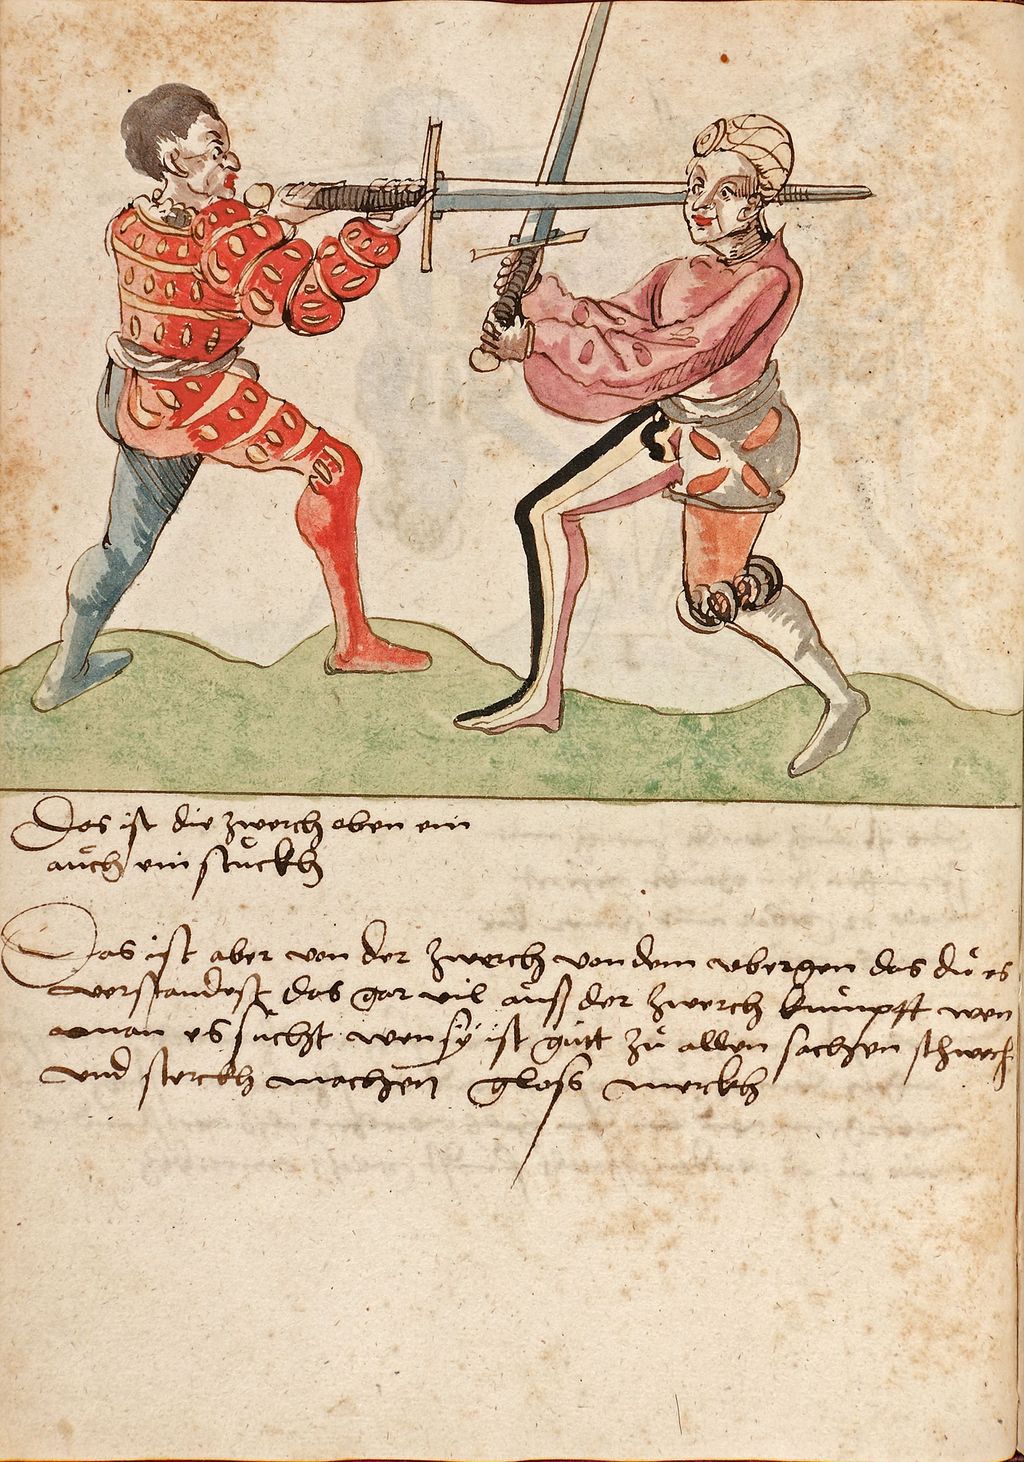 Das ist die zwerch oben ein
aůch ein stůckh
Das ist aber von der zwerch von dem vbergen das dů es
verstandest das gar vil aůß der zwerch kůmpftt wen
man es sůcht wen sÿ ist gůtt zů allen sachen schwech
vnd sterckh machen gloss merckh